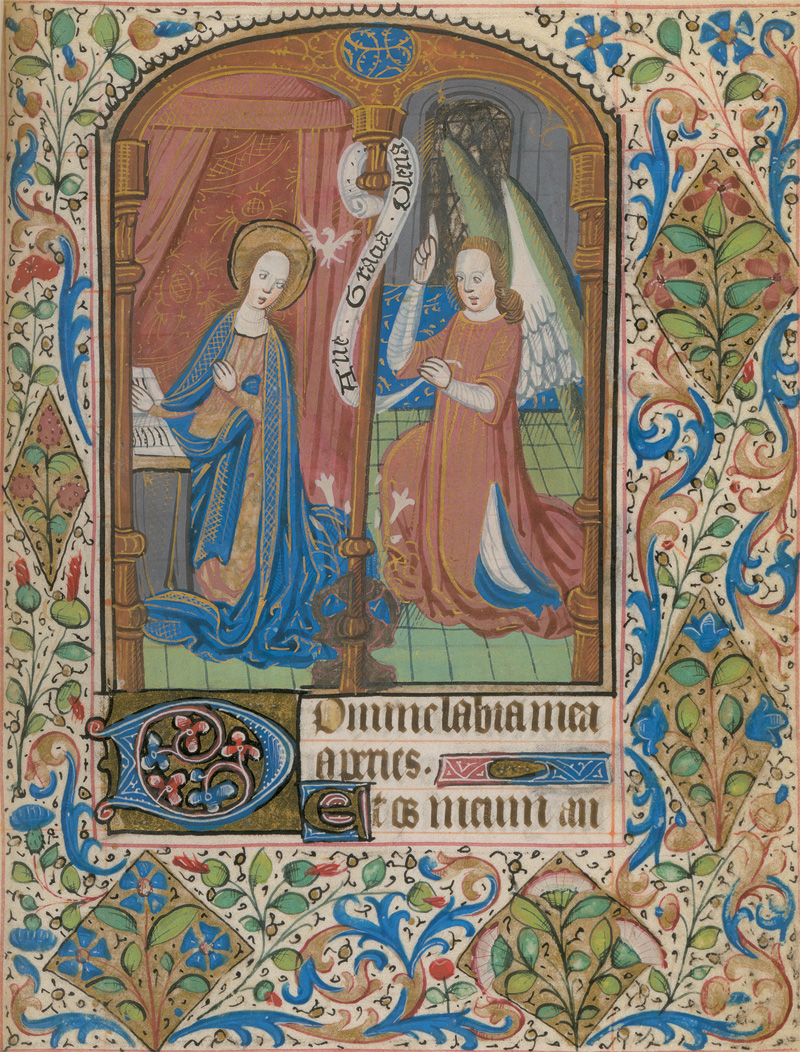 Aue · Gracia · Plena
Domine labia mea
aperies.
Et os meum an